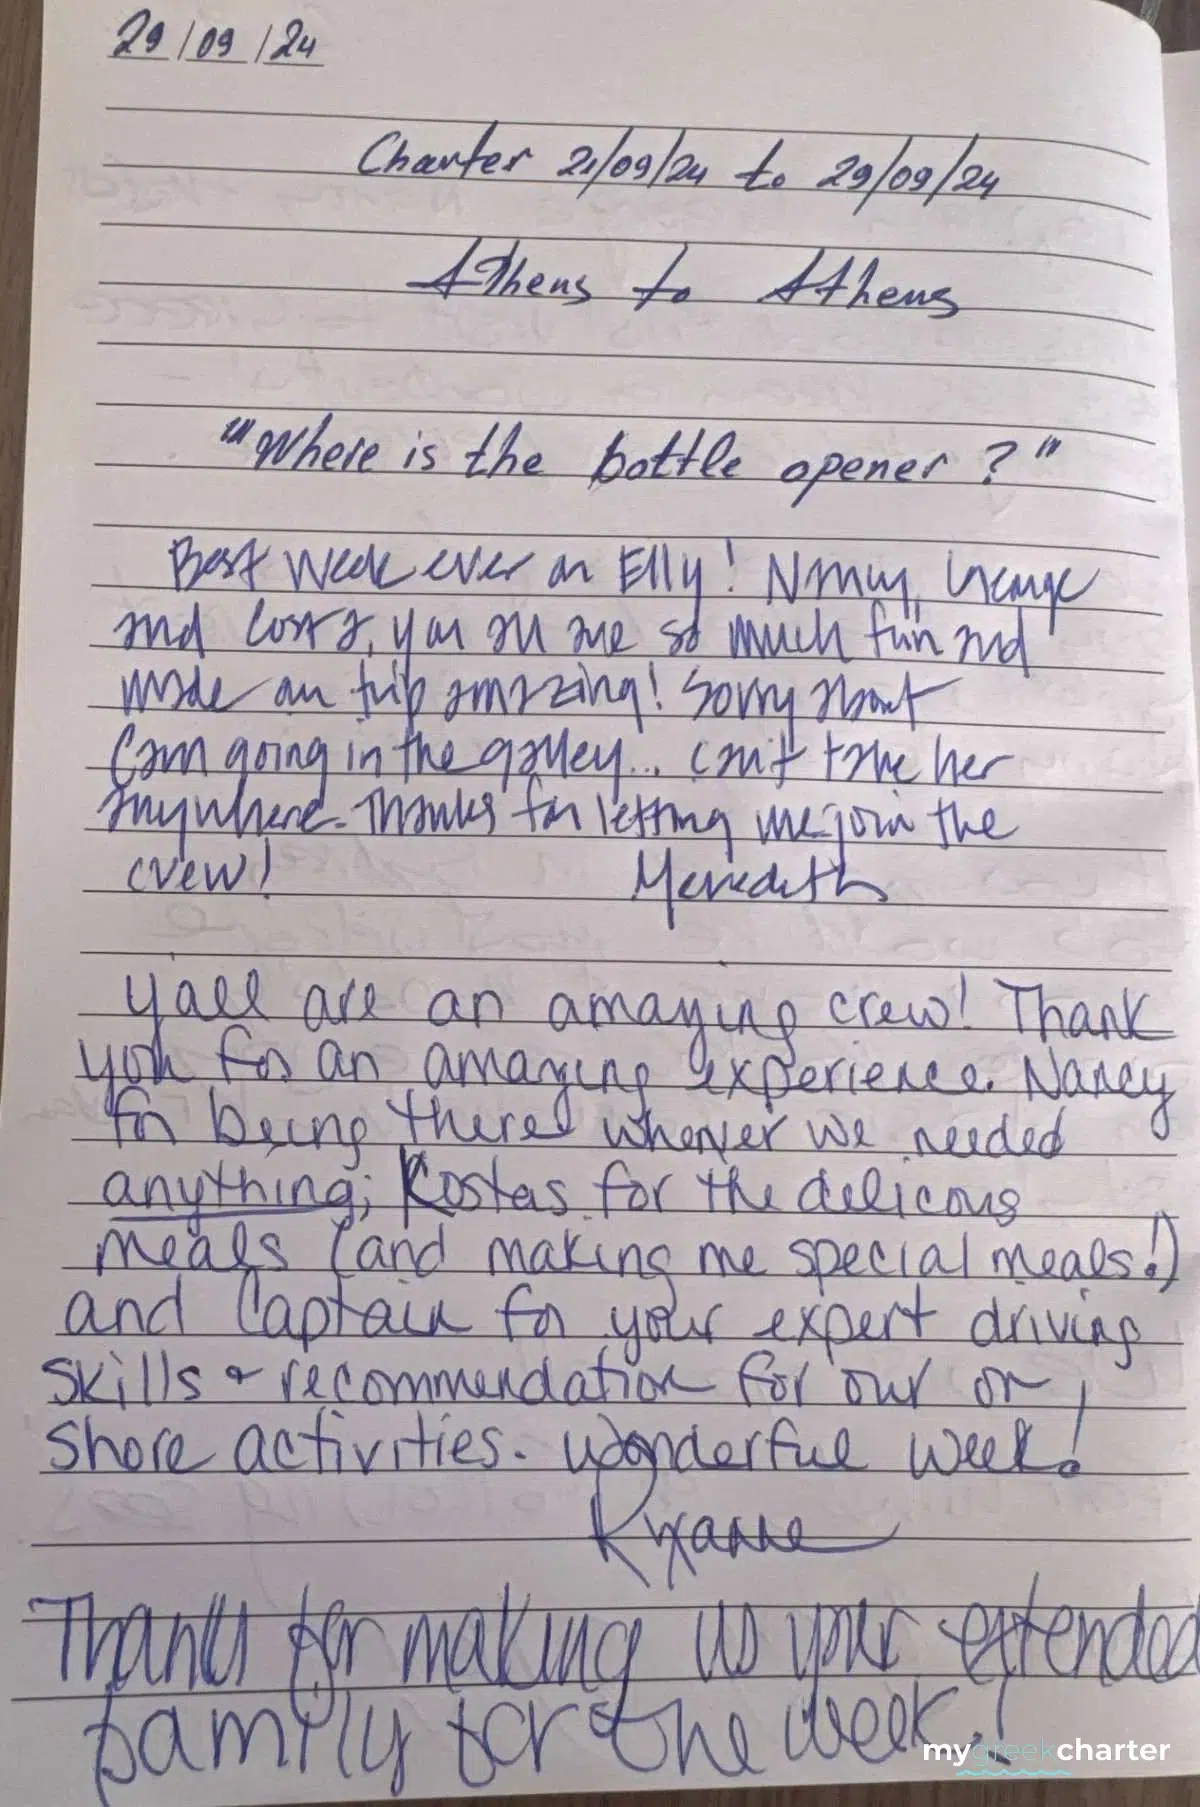 29/09/24
Charter 21/09/24 to 29/09/24
Athens to Athens
"Where is the bottle opener?"
Best week ever on Elly! Nancy, George
and Costa, you all are so much fun and
made our trip amazing! Sorry about
Cam going in the galley... can't take her
anywhere. Thanks for letting me join the
crew! Meredith
Y'all are an amazing crew! Thank
you for an amazing experience. Nancy
for being there whenever we needed
anything; Kostas for the delicous
meals (and making me special meals!)
and Captain for your expert driving
skills & recommendation for our on
shore activities. Wonderful week!
Ryxanne
Thanks for making us your extended
family for the week!
mygreekcharter